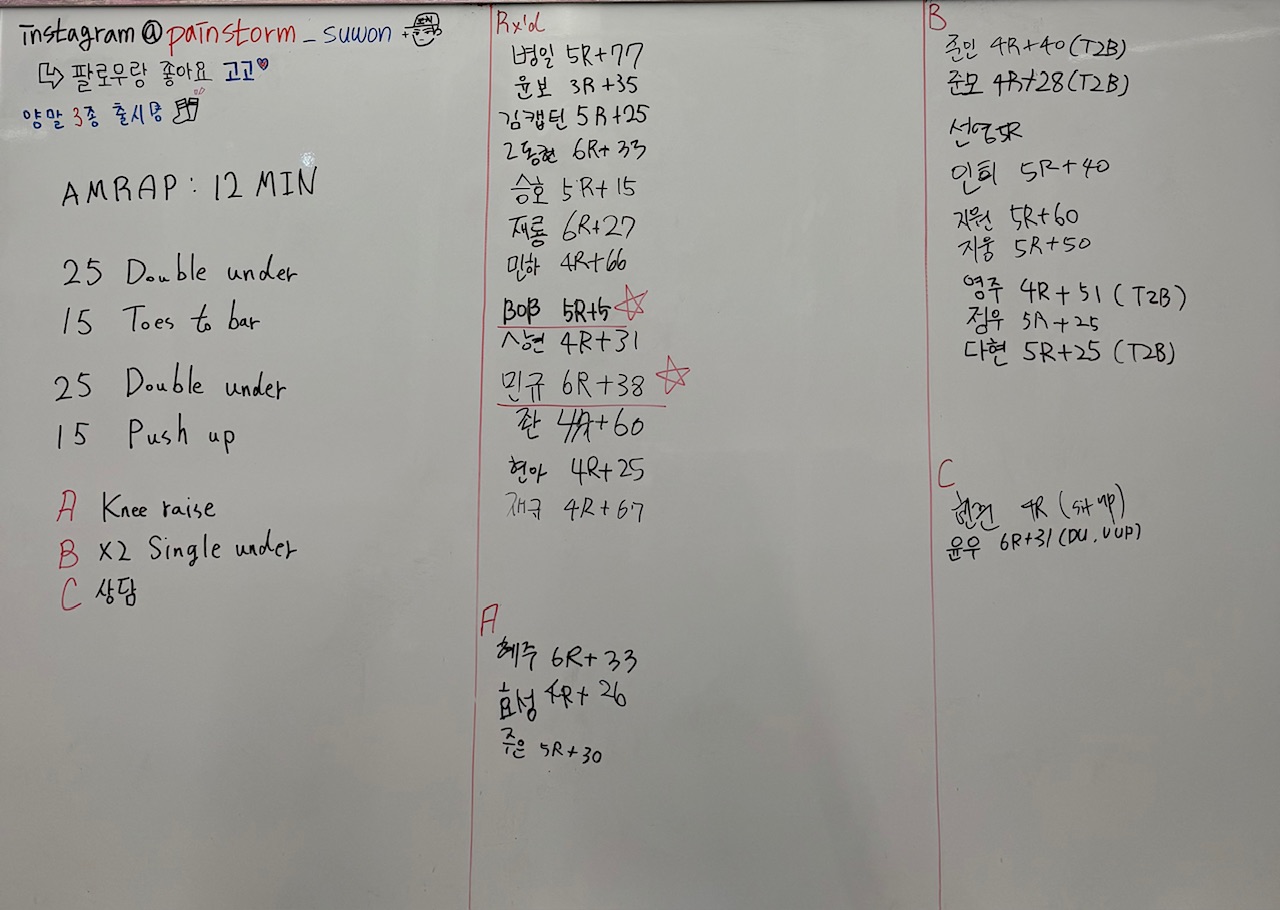 instagram@painstorm_suwon
팔로우랑 좋아요 고고
양말 3종 출시중
AMRAP : 12 MIN
25 Double under
15 Toes to bar
25 Double under
15 Push up
A Knee raise
B X2 Single under
C 상담
Rx'd
병일 5R+77
윤보 3R+35
김캡틴 5R+25
고동현 6R+33
승호 5R+15
재룡 6R+27
민하 4R+66
BOB 5R+5
상현 4R+31
민규 6R+38
좐 4R+60
현아 4R+25
재규 4R+67
A
혜주 6R+33
효성 4R+26
주은 5R+30
B
준민 4R+40(T2B)
준모 4R+28(T2B)
선영 5R
인희 5R+40
지원 5R+60
지웅 5R+50
영주 4R+51(T2B)
점우 5R+25
다현 5R+25 (T2B)
C
4R (sit up)
윤우 6R+31(DU, V UP)